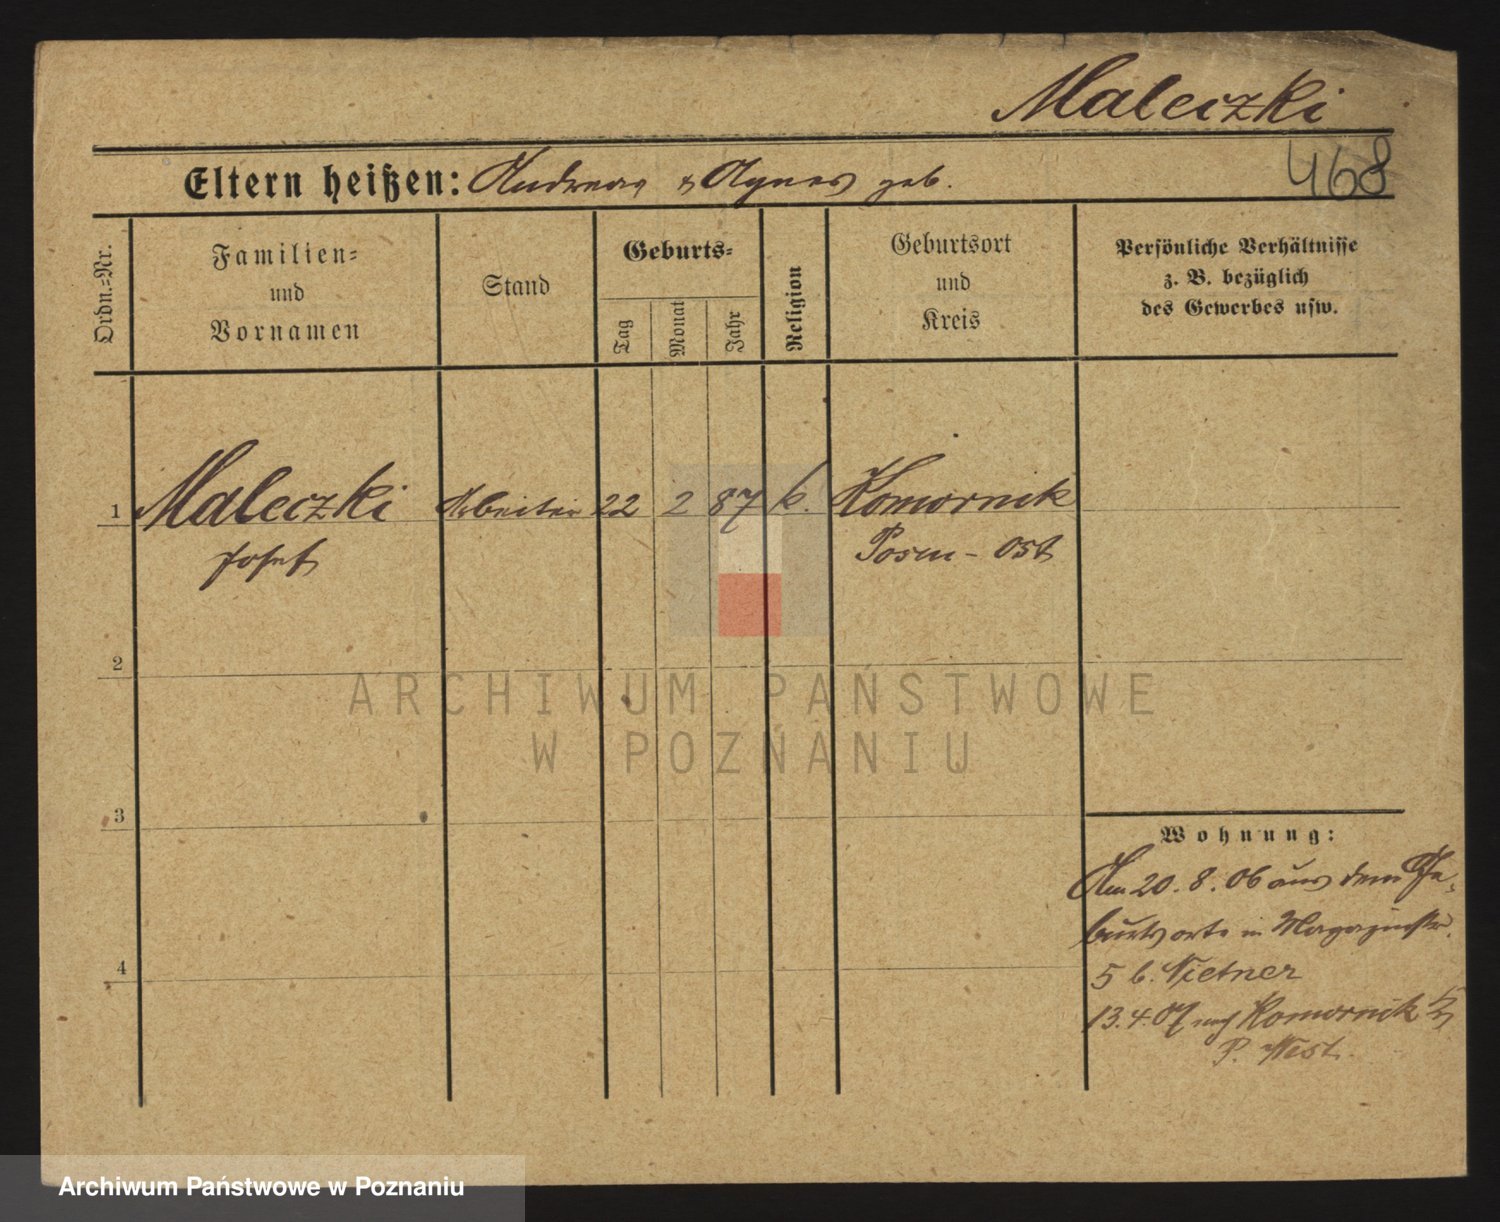 Maleczki
468
Eltern heißen: Andreas & Agnes geb.
Ordn.=Nr.
Familien=
und
Vornamen
Stand
Geburts=
Tag
Monat
Jahr
Religion
Geburtsort
und
Kreis
Persönliche Verhältnisse
z. B. bezüglich
des Gewerbes usw.
1 Maleczki Arbeiter 22 2 87 k. Komornik
Josef Posen - Ost
2
3
4
Wohnung:
Am 20.8.06 aus dem Ge-
burtsorte in Magazinstr.
5 b. Nietner
13.4.07 nach Komornik Kr
P. West.
ARCHIWUM PAŃSTWOWE
W POZNANIU
Archiwum Państwowe w Poznaniu